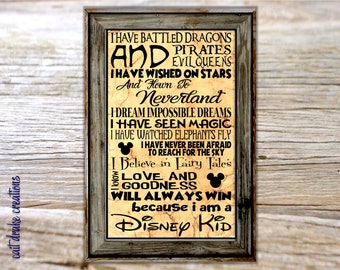 I HAVE BATTLED DRAGONS
AND PIRATES
EVIL QUEENS
I HAVE WISHED ON STARS
And Flown To
Neverland
I DREAM IMPOSSIBLE DREAMS
I HAVE SEEN MAGIC
I HAVE WATCHED ELEPHANTS FLY
I HAVE NEVER BEEN AFRAID
TO REACH FOR THE SKY
I Believe in Fairy Tales
I KNOW LOVE AND
GOODNESS
WILL ALWAYS WIN
because i am a
Disney Kid
cait drake creations